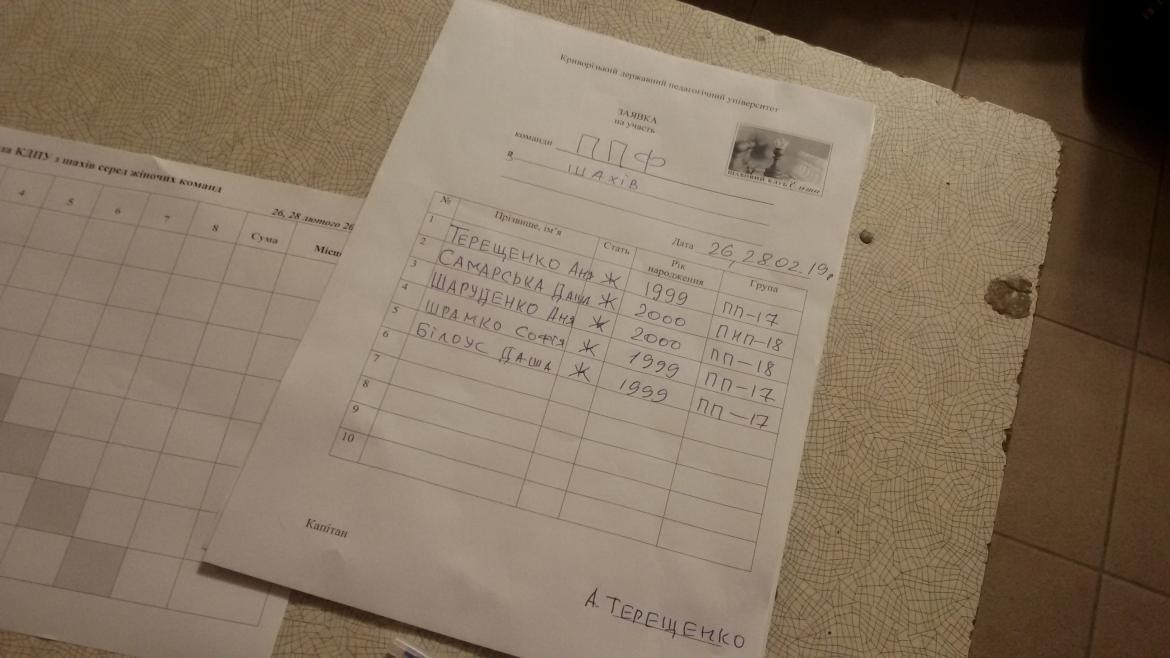 Криворізький державний педагогічний університет
ЗАЯВКА
на участь
команди ППФ
з шахів
ШАХОВИЙ КЛУБ
Дата 26, 28.02.19р
№ Прізвище, ім'я Стать Рік народження Група
1 ТЕРЕЩЕНКО Аня Ж 1999 ПП-17
2 САМАРСЬКА Даша Ж 2000 ПНП-18
3 ШАРУДЕНКО Аня Ж 2000 ПП-18
4 ШРАМКО Софія Ж 1999 ПП-17
5 БІЛОУС Даша Ж 1999 ПП-17
6
7
8
9
10
Капітан
А. ТЕРЕЩЕНКО
КДПУ з шахів серед жіночих команд
26, 28 лютого
4 5 6 7 8 Сума